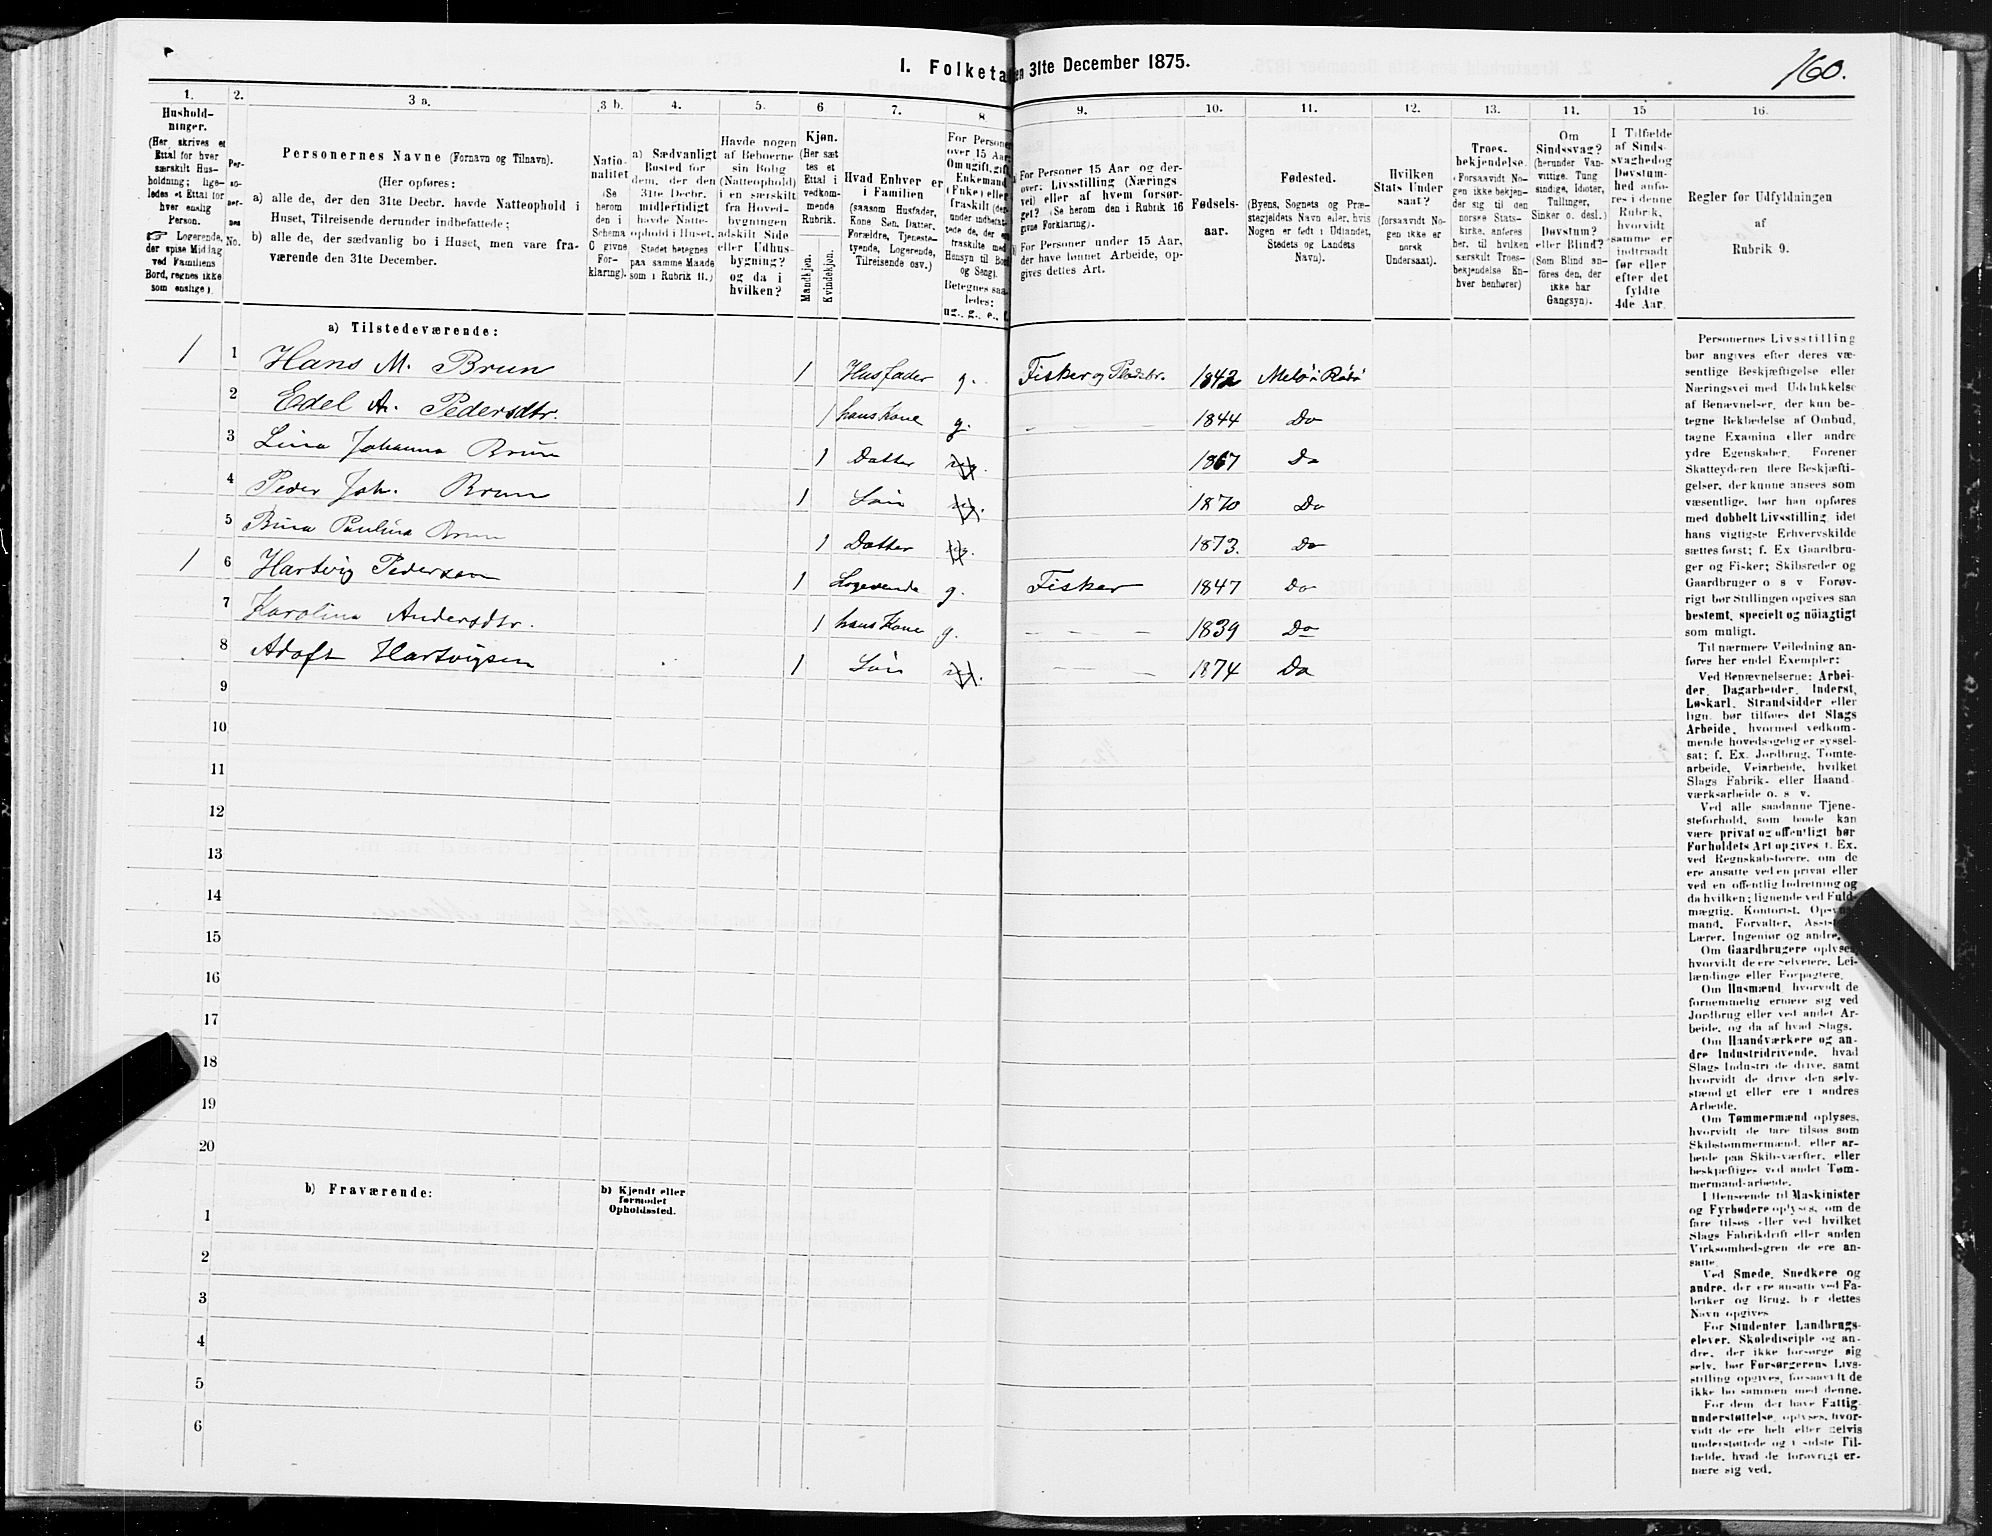 160.
I. Folketa en 31te December 1875.
1. 2. 3 a. 3 b. 4. 5. 6 7. 8 9. 10. 11. 12. 13. 14. 15 16.
Hushold-
ninger.
(Her skrives et
Ettal for hver
særskilt Hus-
holdning; lige-
ledes et Ettal for
hver enslig
Person.
☞ Logerende,
der spise Middag
ved Familiens
Bord, regnes ikke
som enslige).
Per-
so-
ner-
nes
No.
Personernes Navne (Fornavn og Tilnavn).
(Her opføres:
a) alle de, der den 31te Decbr. havde Natteophold i
Huset, Tilreisende derunder indbefattede;
b) alle de, der sædvanlig bo i Huset, men vare fra-
værende den 31te December.
Natio-
nalitet
(Se
herom
den i
Schema
C givne
For-
klaring).
a) Sædvanligt
Bosted for
dem, der den
31te Decbr.
midlertidigt
havde Natte-
ophold i Huset.
(Stedet betegnes
paa samme Maade
som i Rubrik 11.)
Havde nogen
af Beboerne
sin Bolig
(Natteophold)
i en særskilt
fra Hoved-
bygningen
adskilt Side
eller Udhus-
bygning?
og da i
hvilken?
Kjøn.
(Her sæt
tes et
Ettal i
vedkom-
mende
Rubrik.
Mandkjøn.
Kvindekjøn.
Hvad Enhver er
i Familien
(saasom Husfader,
Kone, Søn, Datter,
Forældre, Tjeneste-
tyende, Logerende,
Tilreisende osv.)
For Personer
over 15 Aar
Om ugift, gift,
Enkemand
(Enke) eller
fraskilt (der-
under indbefat-
tede de, der ere
fraskilte med
Hensyn til Bord
og Seng).
Betegnes saa-
ledes:
ug., g., e., f.
a) For Personer 15 Aar og der-
over: Livsstilling (Nærings
vei) eller af hvem forsør-
get? (Se herom den i Rubrik 16
givne Forklaring).
b) For Personer under 15 Aar,
der have lønnet Arbeide, op-
gives dettes Art.
Fødsels-
aar.
Fødested.
(Byens, Sognets og Præ-
stegjeldets Navn eller, hvis
Nogen er født i Udlandet,
Stedets og Landets
Navn).
Hvilken
Stats Under
saat?
(forsaavidt No-
gen ikke er
norsk
Undersaat).
Troes-
bekjendelse.
(Forsaavidt No-
gen ikke bekjen-
der sig til den
norske Stats-
kirke, anføres
her, til hvilken
særskilt Troes-
bekjendelse En-
hver henhører)
Om
Sindssvag?
(herunder Van-
vittige, Tung
sindige, Idioter,
Tullinger,
Sinker o. desl.)
Døvstum?
eller Blind?
(Som Blind an-
føres den, der
ikke har
Gangsyn).
I Tilfælde
af Sinds-
svaghed og
Døvstum-
hed anfø-
res i denne
Rubrik,
hvorvidt
samme er
indtraadt
før eller
efter det
fyldte
4de Aar.
Regler for Udfyldningen
af
Rubrik 9.
a) Tilstedeværende:
1 1 Hans M. Brun 1 Husfader g. Fisker og Pladsbr. 1842 Melö i Rödö
2 Edel A. Pedersdtr. 1 hans Kone g. 1844 Do
3 Lina Johanna Brun 1 Datter ug. 1867 Do
4 Peder Joh. Brun 1 Sön ug. 1870 Do
5 Bina Paulina Brun 1 Datter ug. 1873. Do
1 6 Hartvig Pedersen 1 Logerende g. Fisker 1847 Do
7 Karolina Andersdtr. 1 hans Kone g. 1839 Do
8 Adolf Hartvigsen 1 Sön ug. 1874 Do
9
10
11
12
13
14
15
16
17
18
19
20
b) Fraværende:
b) Kjendt eller
formodet
Opholdssted.
1
2
3
4
5
6
Personernes Livsstilling
bør angives efter deres væ-
sentlige Beskjæftigelse eller
Næringsvei med Udelukkelse
af Benævnelser, der kun be-
tegne Beklædelse af Ombud,
tagne Examina eller andre
ydre Egenskaber. Forener
Skatteyderen flere Beskjæfti-
gelser, der kunne ansees som
væsentlige, bør han opføres
med dobbelt Livsstilling, idet
hans vigtigste Erhvervskilde
sættes først; f. Ex. Gaardbru-
ger og Fisker; Skibsreder og
Gaardbruger o s v Forøv-
rigt bør Stillingen opgives saa
bestemt, specielt og nøiagtigt
som muligt.
Til nærmere Veiledning an-
føres her endel Exempler:
Ved Benævnelserne: Arbei-
der, Dagarbeider, Inderst,
Løskarl, Strandsidder eller
lign. bør tilføies det Slags
Arbeide, hvormed vedkom-
mende hovedsagelig er syssel-
sat; f. Ex. Jordbrug, Tomte-
arbeide, Veiarbeide, hvilket
Slags Fabrik- eller Haand-
værksarbeide o. s v.
Ved alle saadanne Tjene-
steforhold, som baade kan
være privat og offentligt bør
Forholdets Art opgives f. Ex.
ved Regnskabsførere, om de
ere ansatte ved en privat eller
ved en offentlig Indretning og
da hvilken; lignende ved Fuld-
mægtig, Kontorist, Opsyns-
mand, Forvalter, Assistent,
Lærer, Ingeniør og andre.
Om Gaardbrugere oplyses,
hvorvidt de ere Selveiere, Lei-
lændinge eller Forpagtere.
Om Husmænd hvorvidt de
fornemmelig ernære sig ved
Jordbrug eller ved andet Ar-
beide, og da af hvad Slags.
Om Haandværkere og an-
dre Industridrivende, hvad
Slags Industri de drive, samt
hvorvidt de drive den selv-
stændigt eller ere i andres
Arbeide.
Om Tømmermænd oplyses,
hvorvidt de fare tilsøs som
Skibstømmermænd, eller ar-
beide paa Skibsværfter, eller
beskjæftiges ved andet Tøm-
mermand-arbeide.
I Henseende til Maskinister
og Fyrbødere oplyses, om de
fare tilsøs eller ved hvilket
Slags Fabrikdrift eller anden
Virksomhedsgren de ere an-
satte.
Ved Smede, Snedkere og
andre, der ere ansatte ved Fa-
briker og Brug, bør dettes
Navn opgives
For Studenter, Landbrugs-
elever, Skoledisciple og an-
dre, der ikke forsørge sig
selv, bør Forsørgerens Livs-
stilling opgives, forsaavidt de
ikke bo sammen med denne.
For dem, der have Fattig-
understøttelse, oplyses, hvor-
vidt de ere helt eller delvis
understøttede og i sidste Til-
fælde, hvad de forøvrigt er-
nære sig ved.